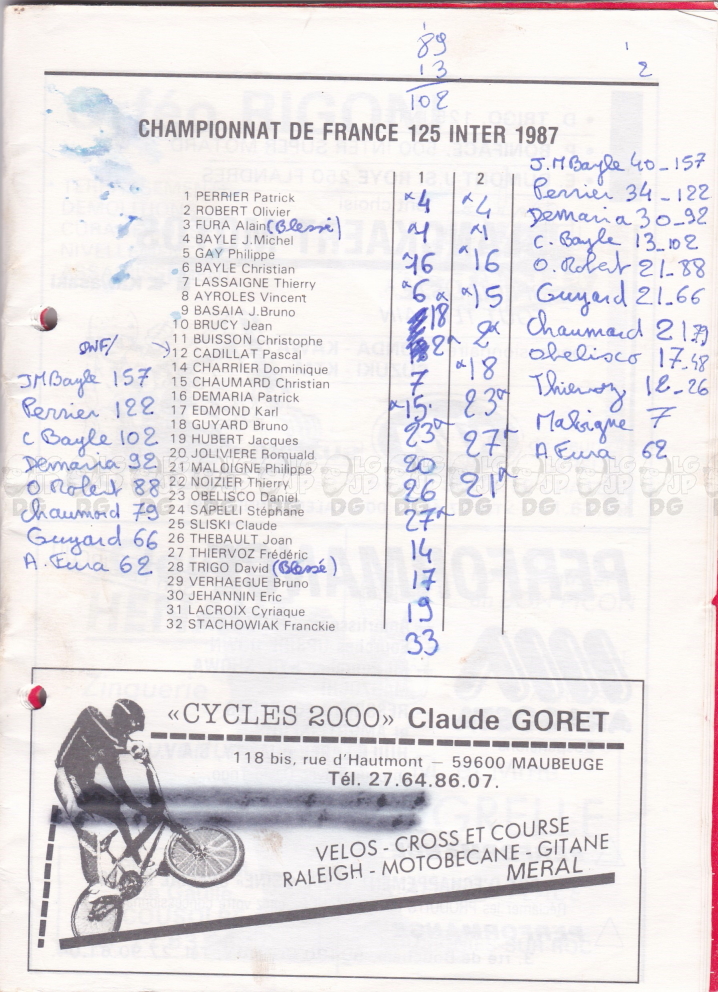 89
13
102
1
2
CHAMPIONNAT DE FRANCE 125 INTER 1987
1 2
1 PERRIER Patrick
2 ROBERT Olivier
3 FURA Alain (Blessé)
4 BAYLE J.Michel
5 GAY Philippe
6 BAYLE Christian
7 LASSAIGNE Thierry
8 AYROLES Vincent
9 BASAIA J.Bruno
10 BRUCY Jean
11 BUISSON Christophe
12 CADILLAT Pascal
14 CHARRIER Dominique
15 CHAUMARD Christian
16 DEMARIA Patrick
17 EDMOND Karl
18 GUYARD Bruno
19 HUBERT Jacques
20 JOLIVIERE Romuald
21 MALOIGNE Philippe
22 NOIZIER Thierry
23 OBELISCO Daniel
24 SAPELLI Stéphane
25 SLISKI Claude
26 THEBAULT Joan
27 THIERVOZ Frédéric
28 TRIGO David (Blessé)
29 VERHAEGUE Bruno
30 JEHANNIN Eric
31 LACROIX Cyriaque
32 STACHOWIAK Franckie
4
1
16
6
18
2
7
15
23
20
26
27
14
17
19
33
4
1
16
15
2
18
23
27
21
J.M Bayle 40_157
Perrier 34_122
Demaria 30_92
C. Bayle 13_102
O. Robert 21_88
Guyard 21_66
Chaumard 21 79
Obelisco 17_48
Thiervoz 12_26
Maloigne 7
A. Fura 62
JM Bayle 157
Perrier 122
C Bayle 102
Demaria 92
O Robert 88
Chaumard 79
Guyard 66
A. Fura 62
«CYCLES 2000» Claude GORET
118 bis, rue d'Hautmont — 59600 MAUBEUGE
Tél. 27.64.86.07.
VELOS - CROSS ET COURSE
RALEIGH - MOTOBECANE - GITANE
MERAL